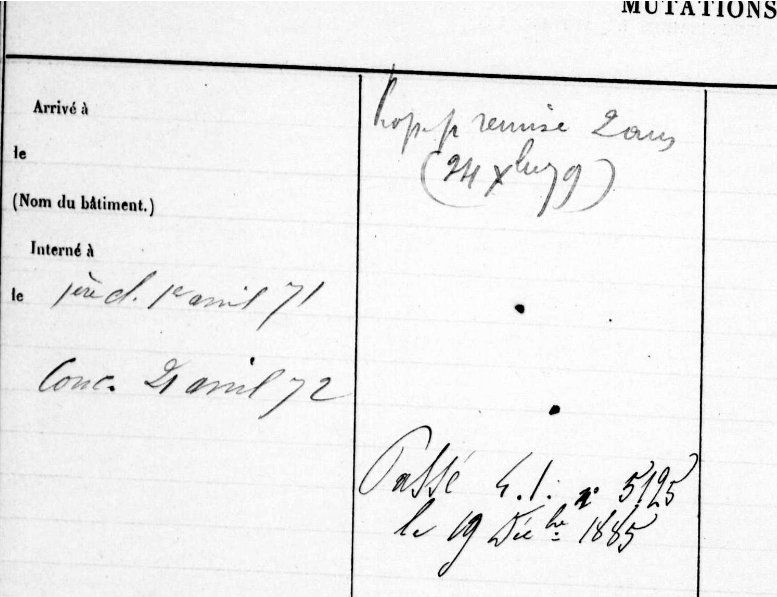 MUTATIONS
Arrivé à
le
(Nom du bâtiment.)
Interné à
le 1ère cl. 1er avril 71
Conc. 21 avril 72
Prop. pr remise 2 ans
(24 Xbre 79)
Passé 4.1. n° 5125
le 19 Déc bre 1885